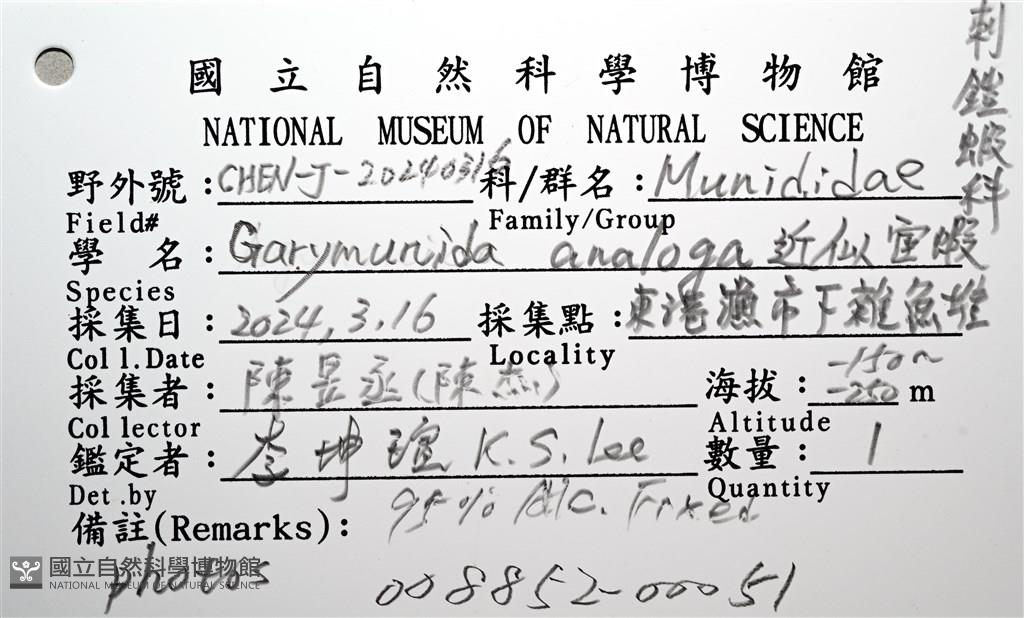 國立自然科學博物館
刺鎧蝦科
NATIONAL MUSEUM OF NATURAL SCIENCE
野外號：CHEN-J-20240316 科/群名：Munididae
Field# Family/Group
學 名：Garymunida analoga 近似宙蝦
Species
採集日：2024,3,16 採集點：東港漁市下雜魚堆
Coll.Date Locality
採集者：陳昱丞(陳杰) 海拔：-150~-250 m
Collector Altitude
鑑定者：李坤瑄 K.S. Lee 數量：1
Det.by Quantity
備註(Remarks)： 95% Alc. Fixed
國立自然科學博物館
NATIONAL MUSEUM OF NATURAL SCIENCE
photos 008852-00051